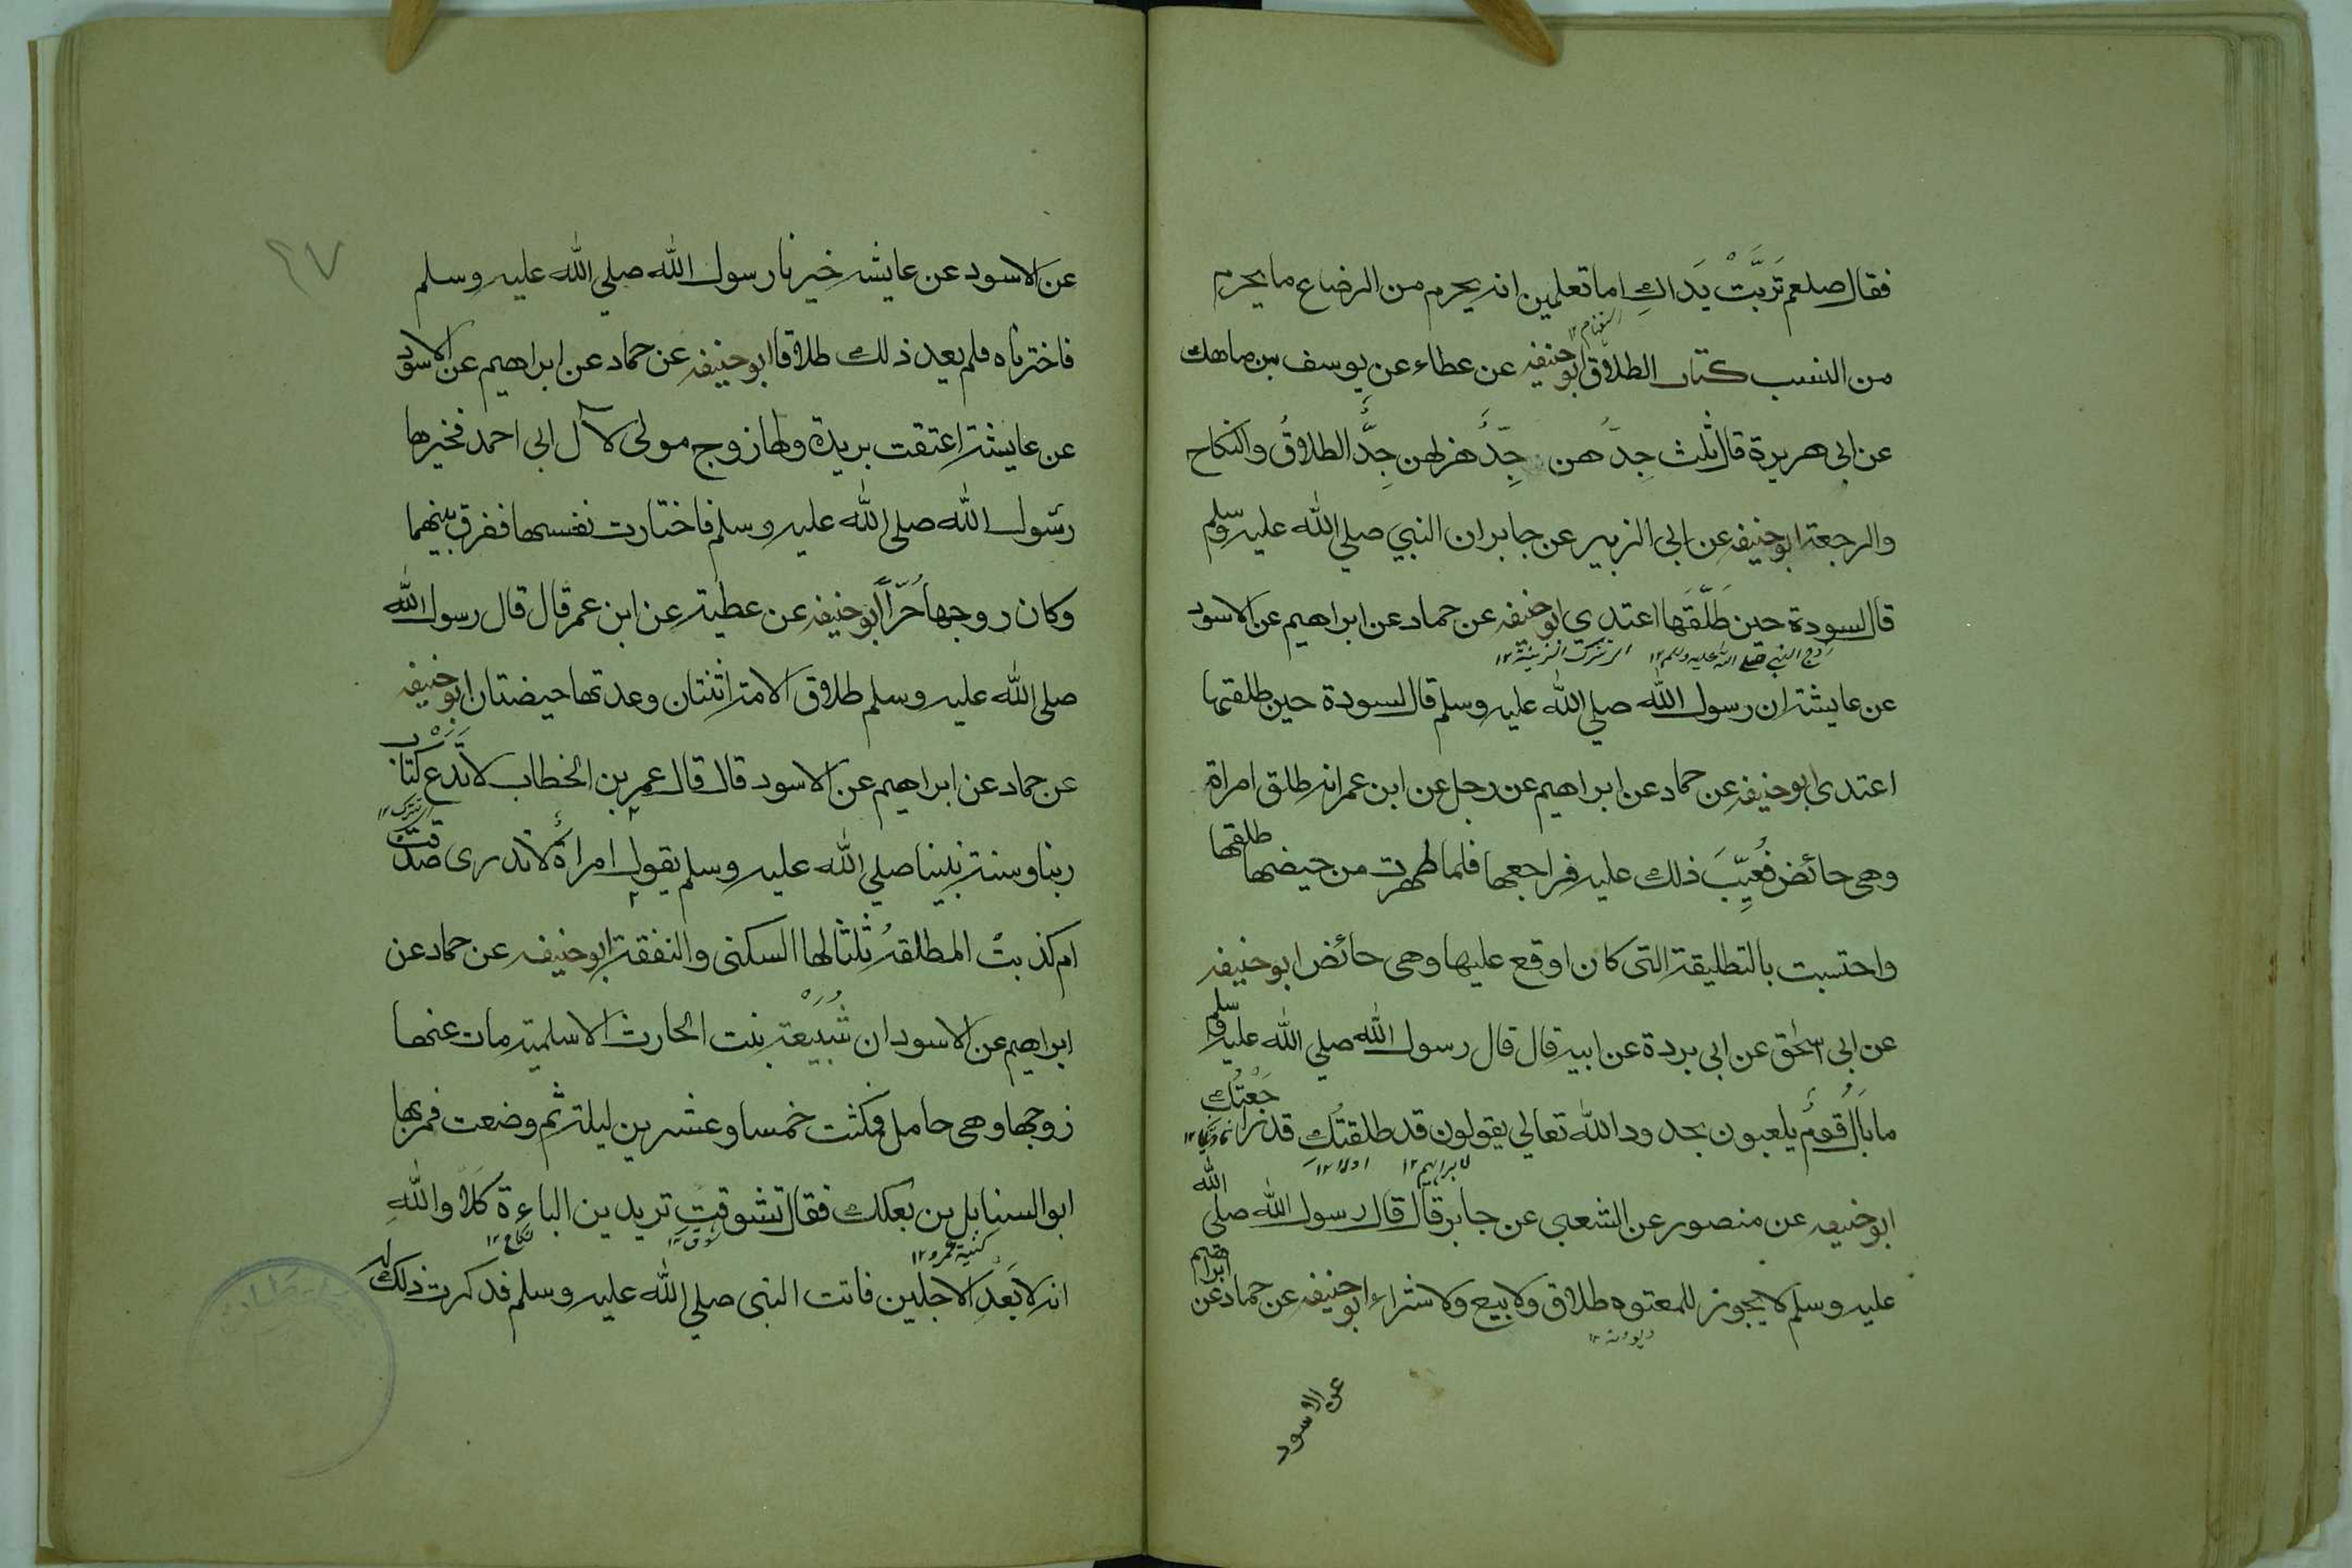 فقال صلعم تَرِبَّتْ يَداكِ اما تعلمين انه يحرم من الرضاع ما يحرم
من النسب كتاب الطلاق ابو حنيفه عن عطاء عن يوسف بن ماهك
عن ابى هريرة قال ثلث جِدّهن جِدٌّ هزلهن جِدٌّ الطلاقُ والنكاح
والرجعة ابو حنيفه عن ابى الزبير عن جابر ان النبي صلي الله عليه وسلم
قال لسودة حين طَلَّقَها اعتدى ابو حنيفه عن حماد عن ابراهيم عن الاسود
زوج النبي صلى الله عليه وسلم ١٢
عن عايشة ان رسول الله صلي الله عليه وسلم قال لسودة حين طلقتها
اعتدى ابو حنيفه عن حماد عن ابراهيم عن رجل عن ابن عمر انه طلق امراة
وهى حائض فعُيِّبَ ذلك عليه فراجعها فلما طهرت من حيضها طلقها
واحتسبت بالتطليقة التى كان اوقع عليها وهى حائض ابو حنيفه
عن ابى اسحٰق عن ابى بردة عن ابيه قال قال رسول الله صلي الله عليه وسلم
ما بَالُ قومٍ يلعبون بحدود الله تعالي يقولون قد طلقتُكِ قد راجَعْتُكِ
ابو حنيفه عن منصور عن الشعبى عن جابر قال قال رسول الله صلى الله
عليه وسلم لا يجوز للمعتوه طلاق ولا بيع ولا شراء ابو حنيفه عن حماد عن ابراهيم
ديوانه ١٢
عن الاسود
٢٧
عن الاسود عن عايشه خيرنا رسول الله صلي الله عليه وسلم
فاخترناه فلم يعد ذلك طلاقا ابو حنيفه عن حماد عن ابراهيم عن الاسود
عن عايشة اعتقت بريدة ولها زوج مولى لآل ابى احمد فخيرها
رسول الله صلى الله عليه وسلم فاختارت نفسها ففرق بينهما
وكان زوجها حُرّاً ابو حنيفه عن عطية عن ابن عمر قال قال رسول الله
صلى الله عليه وسلم طلاق الامة اثنتان وعدتها حيضتان ابو حنيفه
عن حماد عن ابراهيم عن الاسود قال قال عمر بن الخطاب لا نَدَعُ كتابَ
ربنا وسنة نبينا صلي الله عليه وسلم بقول امراةٍ لا ندرى صدقت
ام كذبتْ المطلقةُ ثلثا لها السكنى والنفقة ابو حنيفه عن حماد عن
ابراهيم عن الاسود ان سُبَيْعة بنت الحارث الاسلمية مات عنها
زوجها وهى حامل فمكثت خمسا وعشرين ليلة ثم وضعت فمر بها
ابو السنابل بن بعكك فقال تشوقتِ تريدين الباءة كَلّا واللهِ
كنية عمرو ١٢
نكاح ١٢
انه لابَعَدُ الاجلين فاتت النبى صلي الله عليه وسلم فذكرت ذلك له